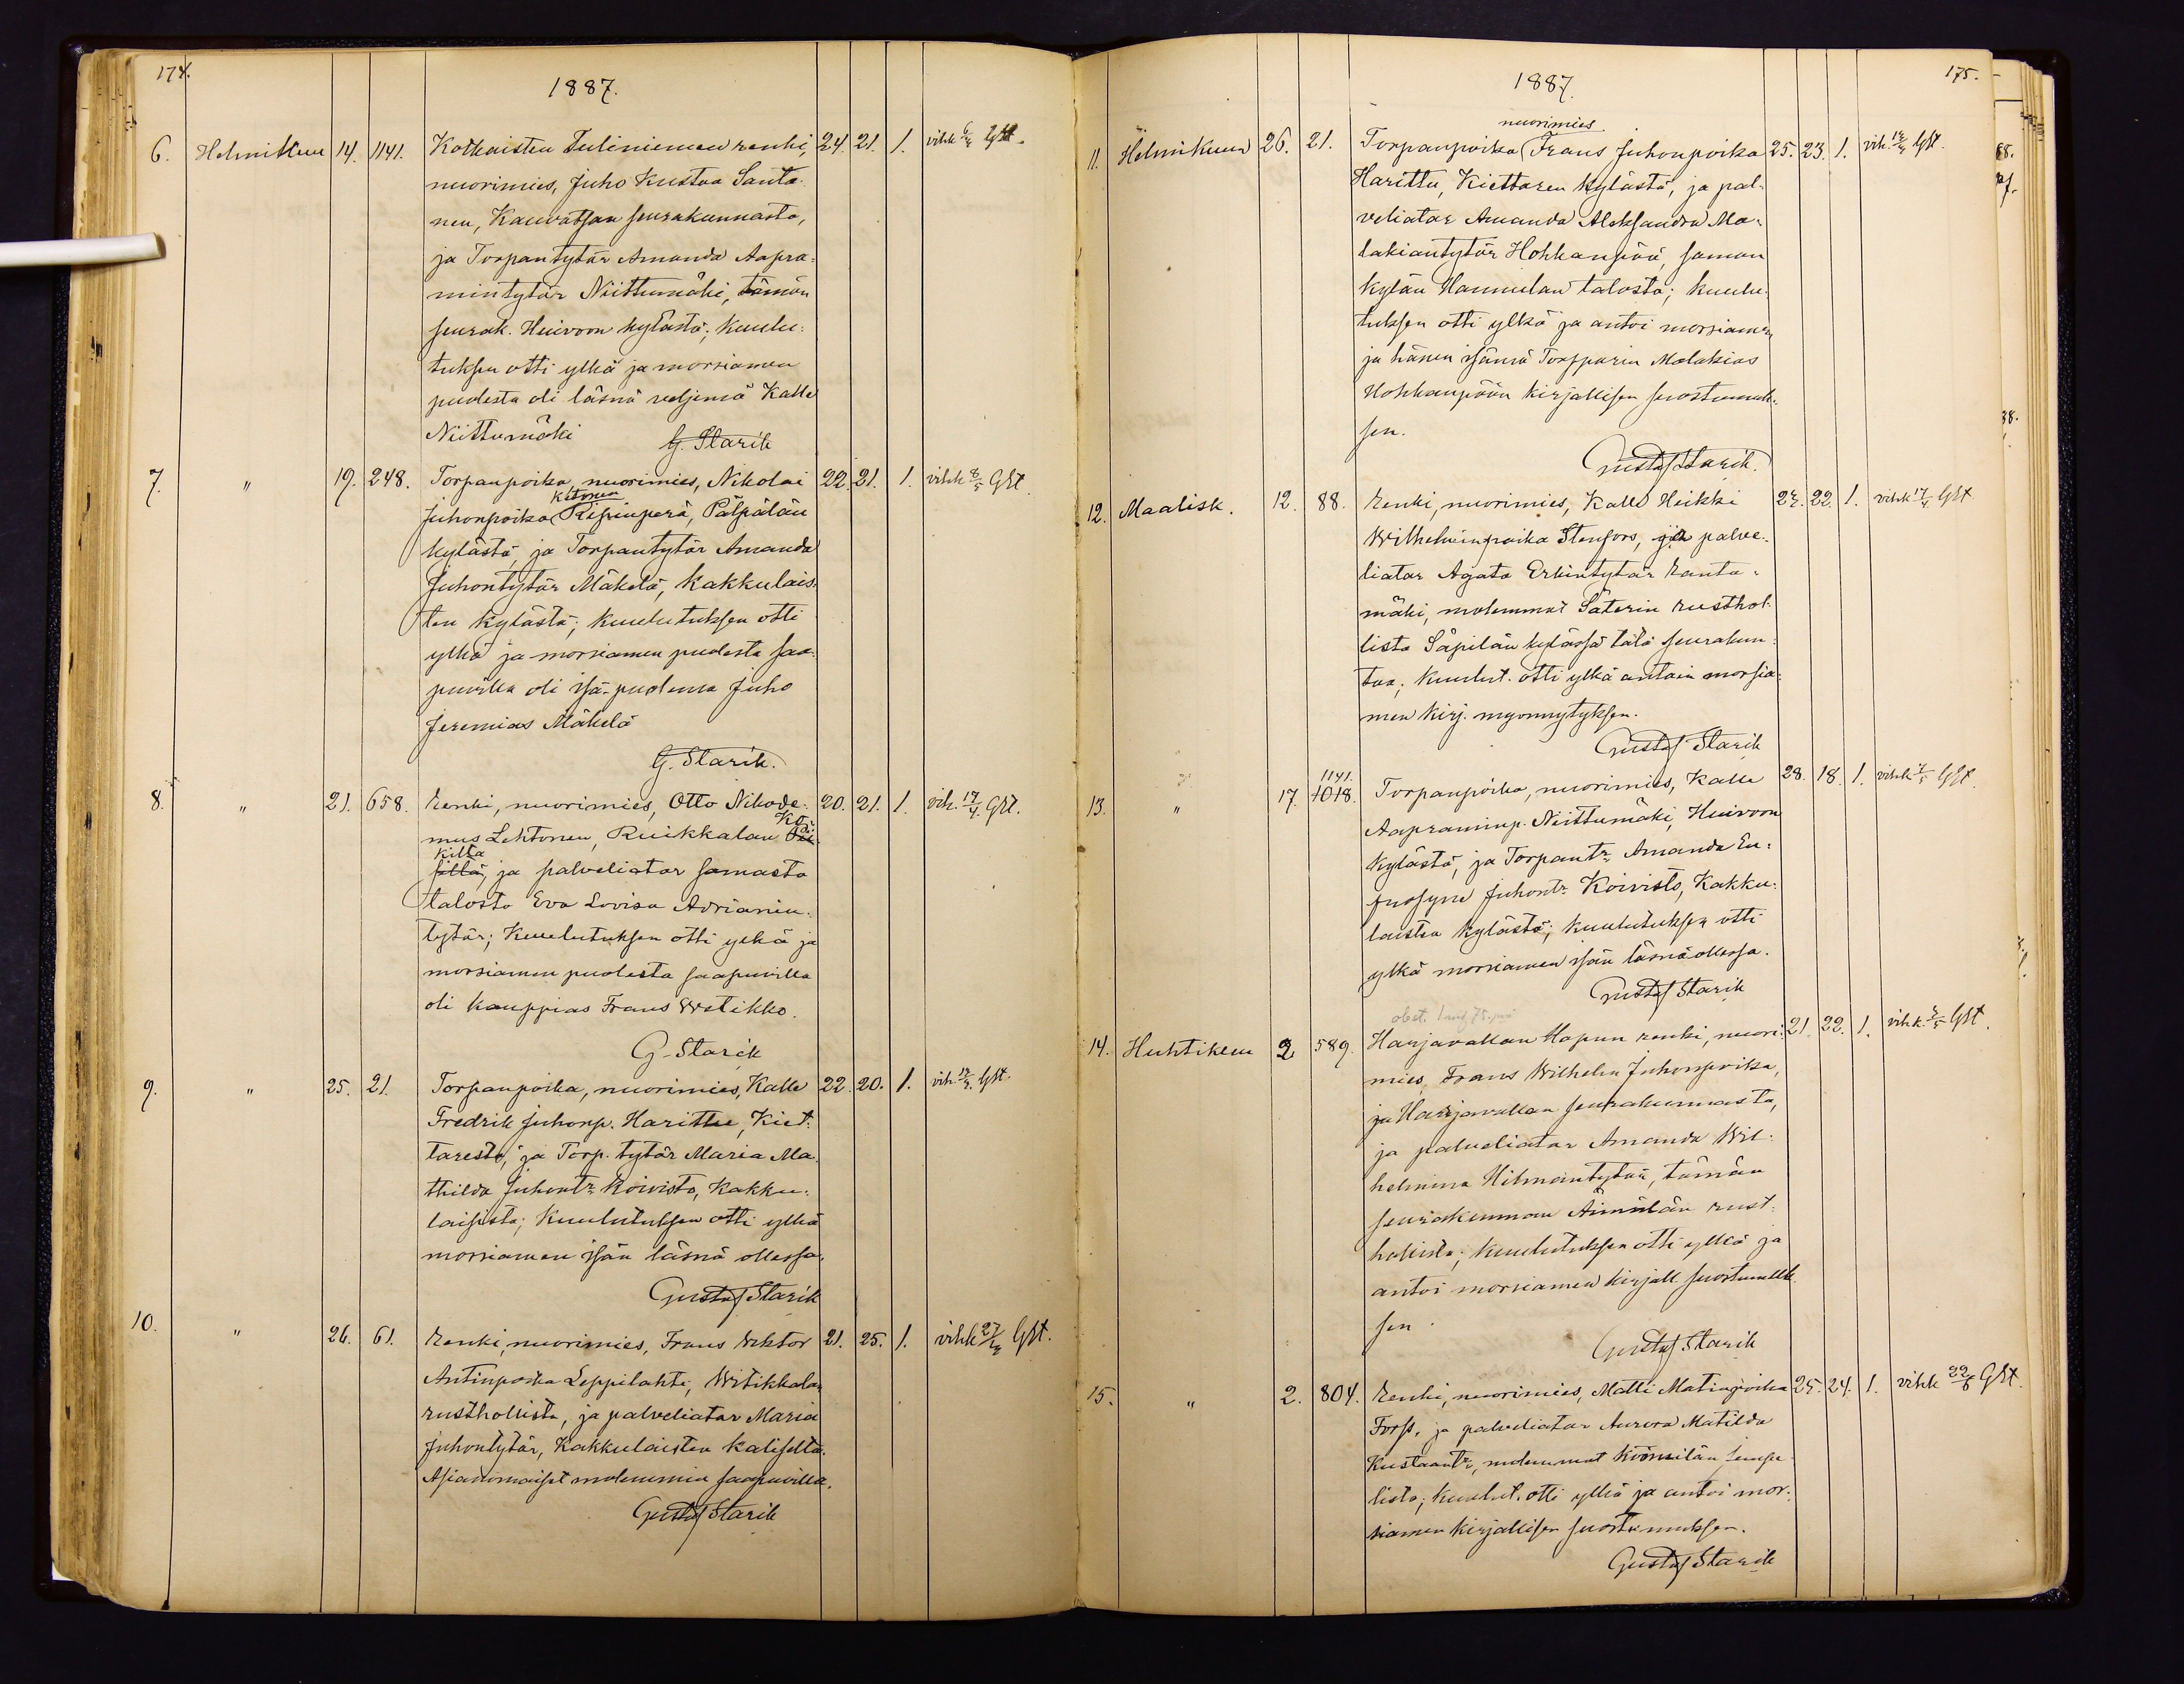 174.
1887.
6. Helmikuu 14. 1141. Kotkaisten Tuliniemen renki, 24. 21. 1. vihk GSt.
nuorimies, Juho Kustaa Santa-
nen, Kauvatsan seurakunnasta,
ja Torpantytär Amanda Aapra-
mintytär Niittumäki, tämän
seurak. Huivoon kylästä; kuulu-
tuksen otti ylkä ja morsiamen
puolesta oli läsnä veljensä Kalle
Niittumäki G. Starik
7. " 19. 248. Torpanpoika, nuorimies, Nikolai 22. 21. 1. vihk 8/5 GSt
Ketonen
Juhonpoika Ripinperä, Pälpälän
kylästä, ja Torpantytär Amanda
Juhontytär Mäkelä, Kakkulais-
ten kylästä; kuulutuksen otti
ylkä ja morsiamen puolesta saa-
puvilla oli isä-puolensa Juho
Jeremias Mäkelä
G. Starik.
8. " 21. 658. Renki, nuorimies, Otto Nikode- 20. 21. 1. vih. 17/4. GSt.
mus Lehtonen, Ruikkalan
killa
ja palveliatar samasta
talosta Eva Lovisa Adrianin-
tytär; Kuulutuksen otti ylkä ja
morsiamen puolesta saapuvilla
oli kauppias Frans Witikko.
G. Starik
9. " 25. 21. Torpanpoika, nuorimies, Kalle 22. 20. 1. vih. GSt.
Fredrik Juhonp. Harittu, Kiet-
taresta, ja Torp. tytär Maria Ma-
thilda Juhontr Koivisto, Kakku-
laisista; Kuulutuksen otti ylkä
morsiamen isän läsnä ollessa.
Gustaf Starik
10. " 26. 61. Renki, nuorimies, Frans Viktor 21. 25. 1. vihk GSt.
Antinpoika Leppilahti, Witikkalan
rusthollista, ja palveliatar Maria
Juhontytär, Kakkulaisten
Asianomaiset molemmin saapuvilla.
Gustaf Starik
175.
1887.
nuorimies
11. Helmikuun 26. 21. Torpanpoika Frans Juhonpoika 25. 23. 1. vih. GSt.
Harittu, Kiettaren kylästä, ja pal-
veliatar Amanda Aleksandra Ma-
lakiantytär Hohkanpää, saman
kylän Hannulan talosta; kuulu-
tuksen otti ylkä ja antoi morsiamen
ja hänen isänsä Torpparin Malakias
Hohkanpään kirjallisen suostumuk-
sen.
Gustaf Starik.
12. Maalisk. 12. 88. Renki, nuorimies, Kalle Heikki 24. 22. 1. vihk 17/4. GSt
Wilhelminpoika Stenfors, ja palve-
liatar Agata Erkintytär Ranta-
mäki, molemmat Säterin rusthol-
lista Säpilän kylässä tätä seurakun-
taa; kuulut. otti ylkä antain morsia-
men kirj. myönnytyksen.
Gustaf Starik
1141.
13. " 17. 1018. Torpanpoika, nuorimies, Kalle 28. 18. 1. vihk GSt.
Aapraminp. Niittumäki, Huivoon
kylästä, ja Torpantr Amanda Eu-
frosyne Juhontr Koivisto, Kakku-
laisten kylästä; kuulutuksen otti
ylkä morsiamen isän läsnäollessa.
Gustaf Starik
14. Huhtikuu 2 589. Harjavallan Hapun renki, nuori- 21. 22. 1. vihk. GSt.
mies, Frans Wilhelm Juhonpoika,
ja Harjavallan seurakunnasta,
ja palveliatar Amanda Wil-
helmina Hilmaintytär, tämän
seurakunnan Äimälän rust-
hollista; Kuulutuksen otti ylkä ja
antoi morsiamen kirjall suostumuk-
sen.
Gustaf Starik
15. " 2. 804. Renki, nuorimies, Matti Matinpoika 25. 24. 1. vihk GSt.
Forss, ja palveliatar Aurora Matilda
Kustaantr, molemmat Köömilän
lista; kuulut. otti ylkä ja antoi mor-
siamen kirjallisen suostumuksen.
Gustaf Starik